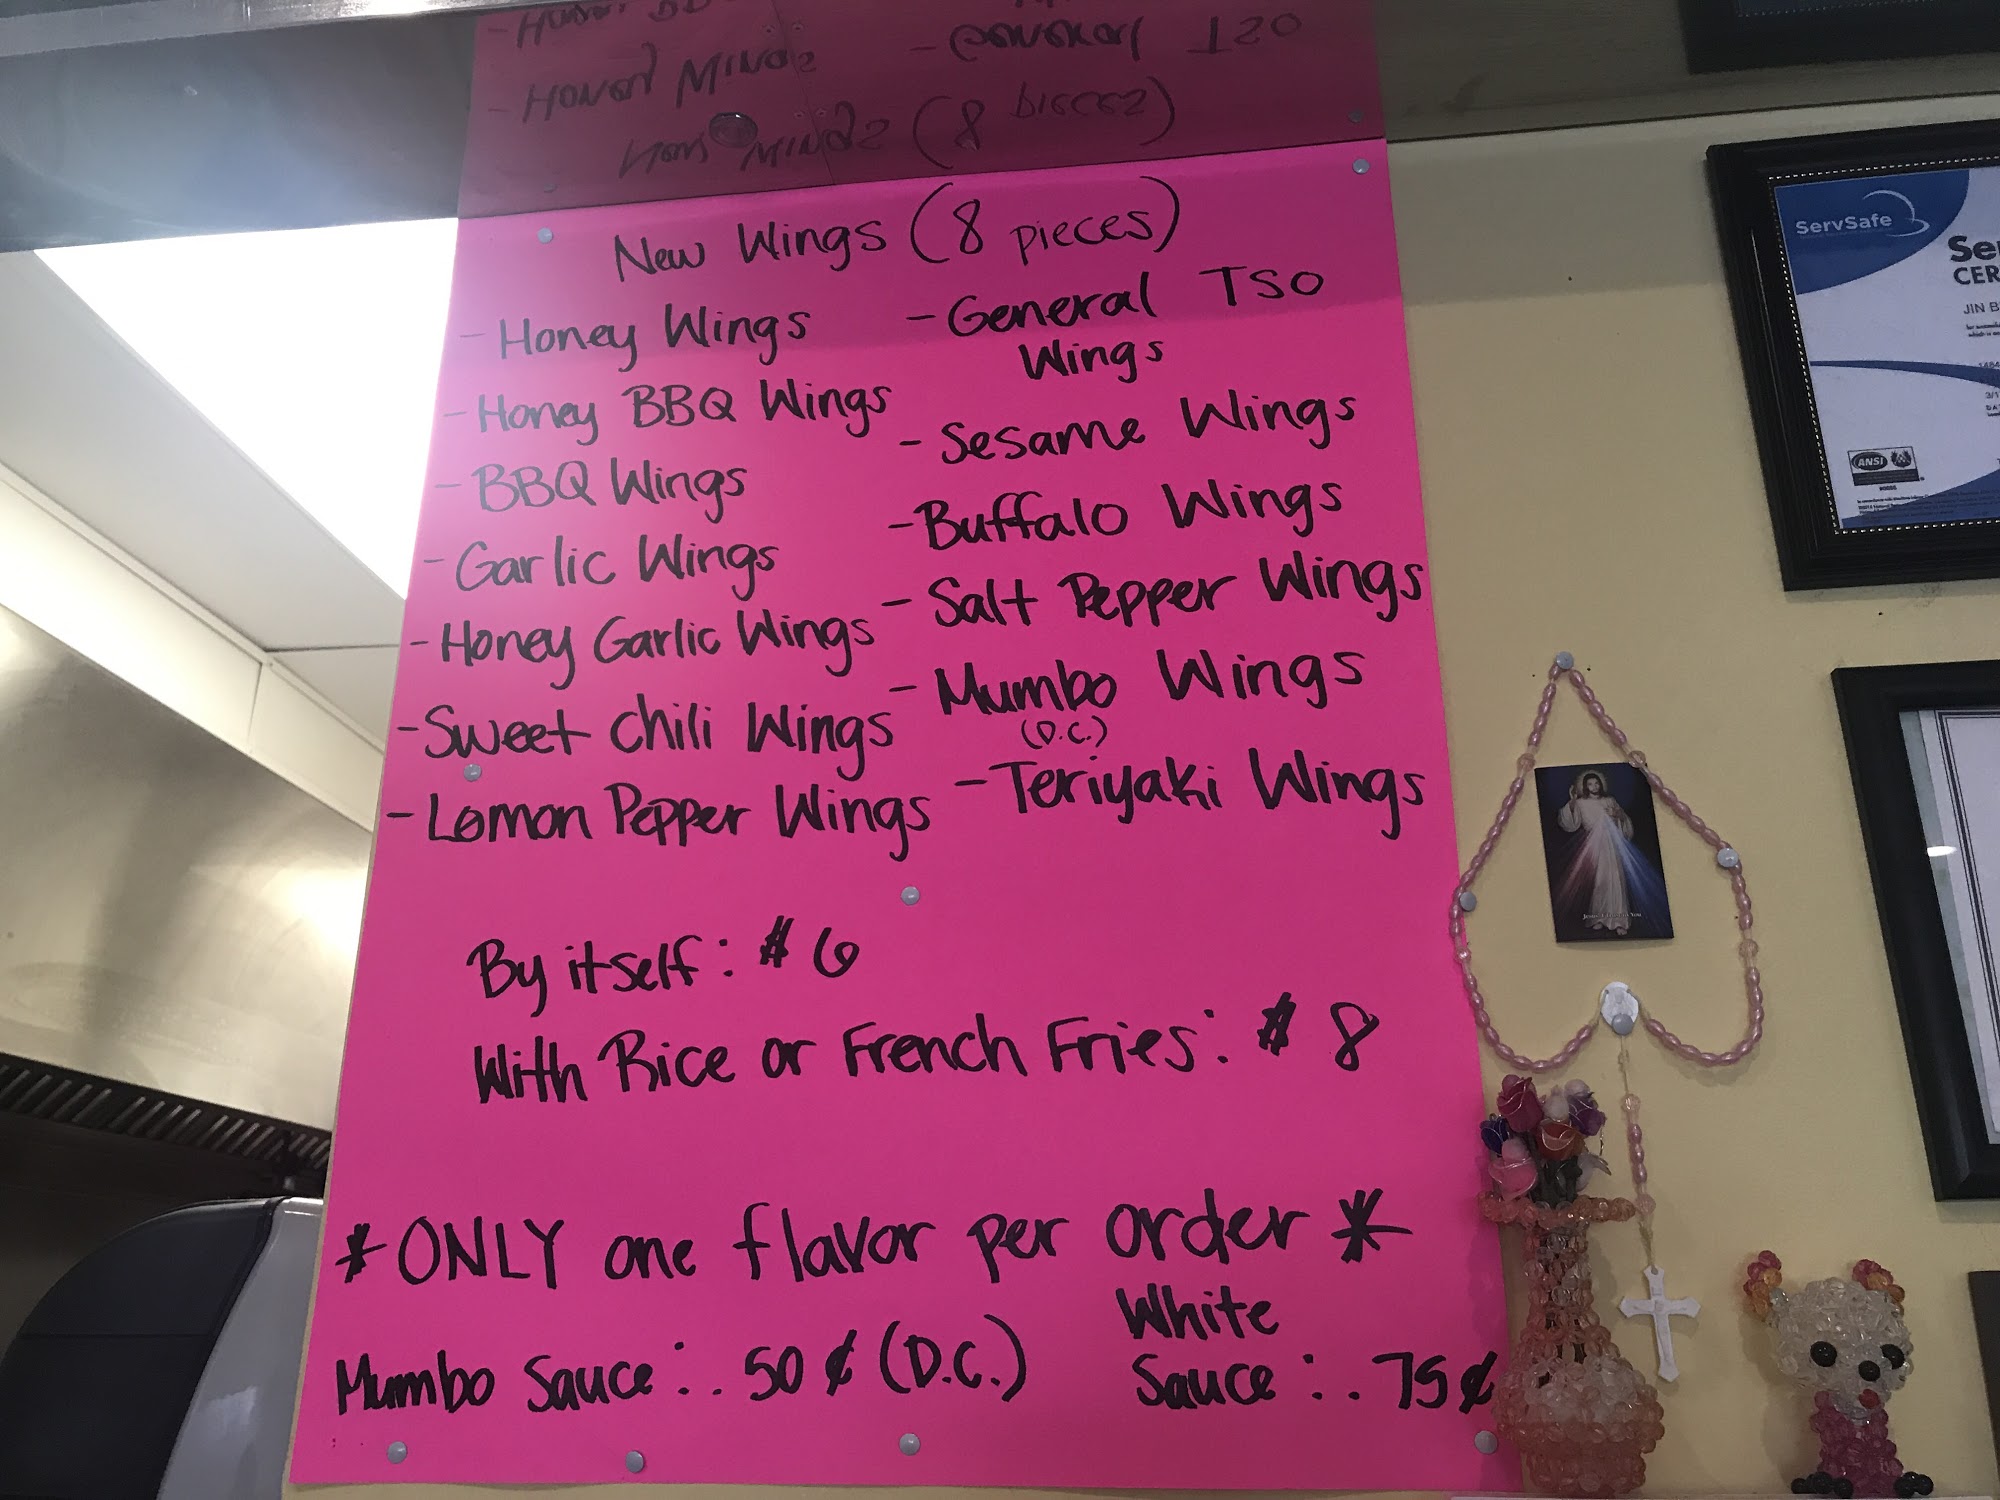 New Wings (8 pieces)
- Honey Wings
- Honey BBQ Wings
- BBQ Wings
- Garlic Wings
- Honey Garlic Wings
- Sweet Chili Wings
- Lemon Pepper Wings
- General TSO
Wings
- Sesame Wings
- Buffalo Wings
- Salt Pepper Wings
- Mumbo Wings
(D.C.)
- Teriyaki Wings
By itself: $ 6
With Rice or French Fries: $ 8
* ONLY one flavor per order *
Mumbo Sauce : . . 50 ¢ (D.C.)
White
Sauce : . . 75 ¢
ServSafe
CER
JIN B
ANSI